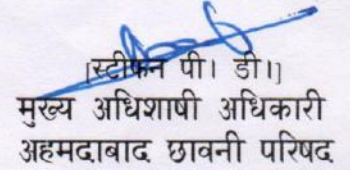 [स्टीफन पी। डी।]
मुख्य अधिशाषी अधिकारी
अहमदाबाद छावनी परिषद